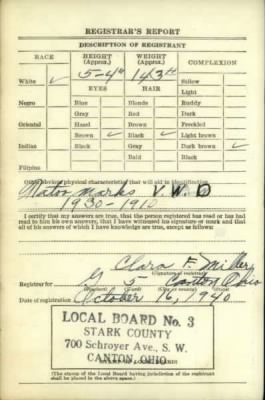 REGISTRAR'S REPORT
DESCRIPTION OF REGISTRANT
RACE HEIGHT (Approx.) WEIGHT (Approx.) COMPLEXION
5-4" 143#
White ✓ EYES HAIR Sallow
Light
Negro Blue Blonde Ruddy
Gray Red Dark
Oriental Hazel Brown Freckled
Brown ✓ Black ✓ Light brown
Indian Black Gray Dark brown ✓
Bald Black
Filipino
Other obvious physical characteristics that will aid in identification
Marks V.W.D
1930-1910
I certify that my answers are true, that the person registered has read or has had
read to him his own answers, that I have witnessed his signature or mark and that
all of his answers of which I have knowledge are true, except as follows:
Clara F. Miller
(Signature of registrar)
Registrar for G 5 Canton Ohio
Date of registration October 16, 1940
LOCAL BOARD No. 3
STARK COUNTY
700 Schroyer Ave., S. W.
CANTON, OHIO
(The stamp of the Local Board having jurisdiction of the registrant
shall be placed in the above space.)